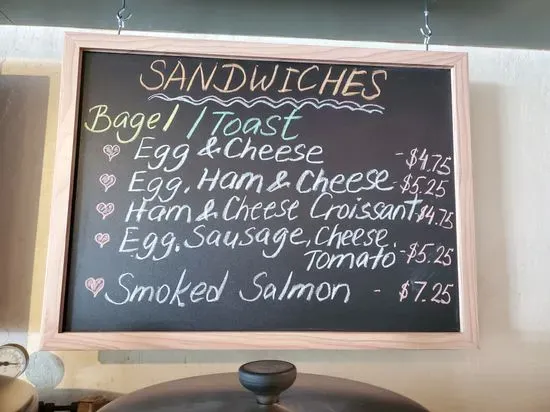 SANDWICHES
Bagel / Toast
Egg & Cheese - $4.75
Egg. Ham & Cheese - $5.25
Ham & Cheese Croissant - $4.75
Egg. Sausage, Cheese.
Tomato - $5.25
Smoked Salmon - $7.25